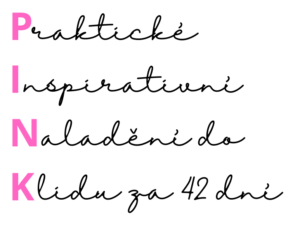 Praktické
Inspirativní
Naladění do
Klidu za 42 dní